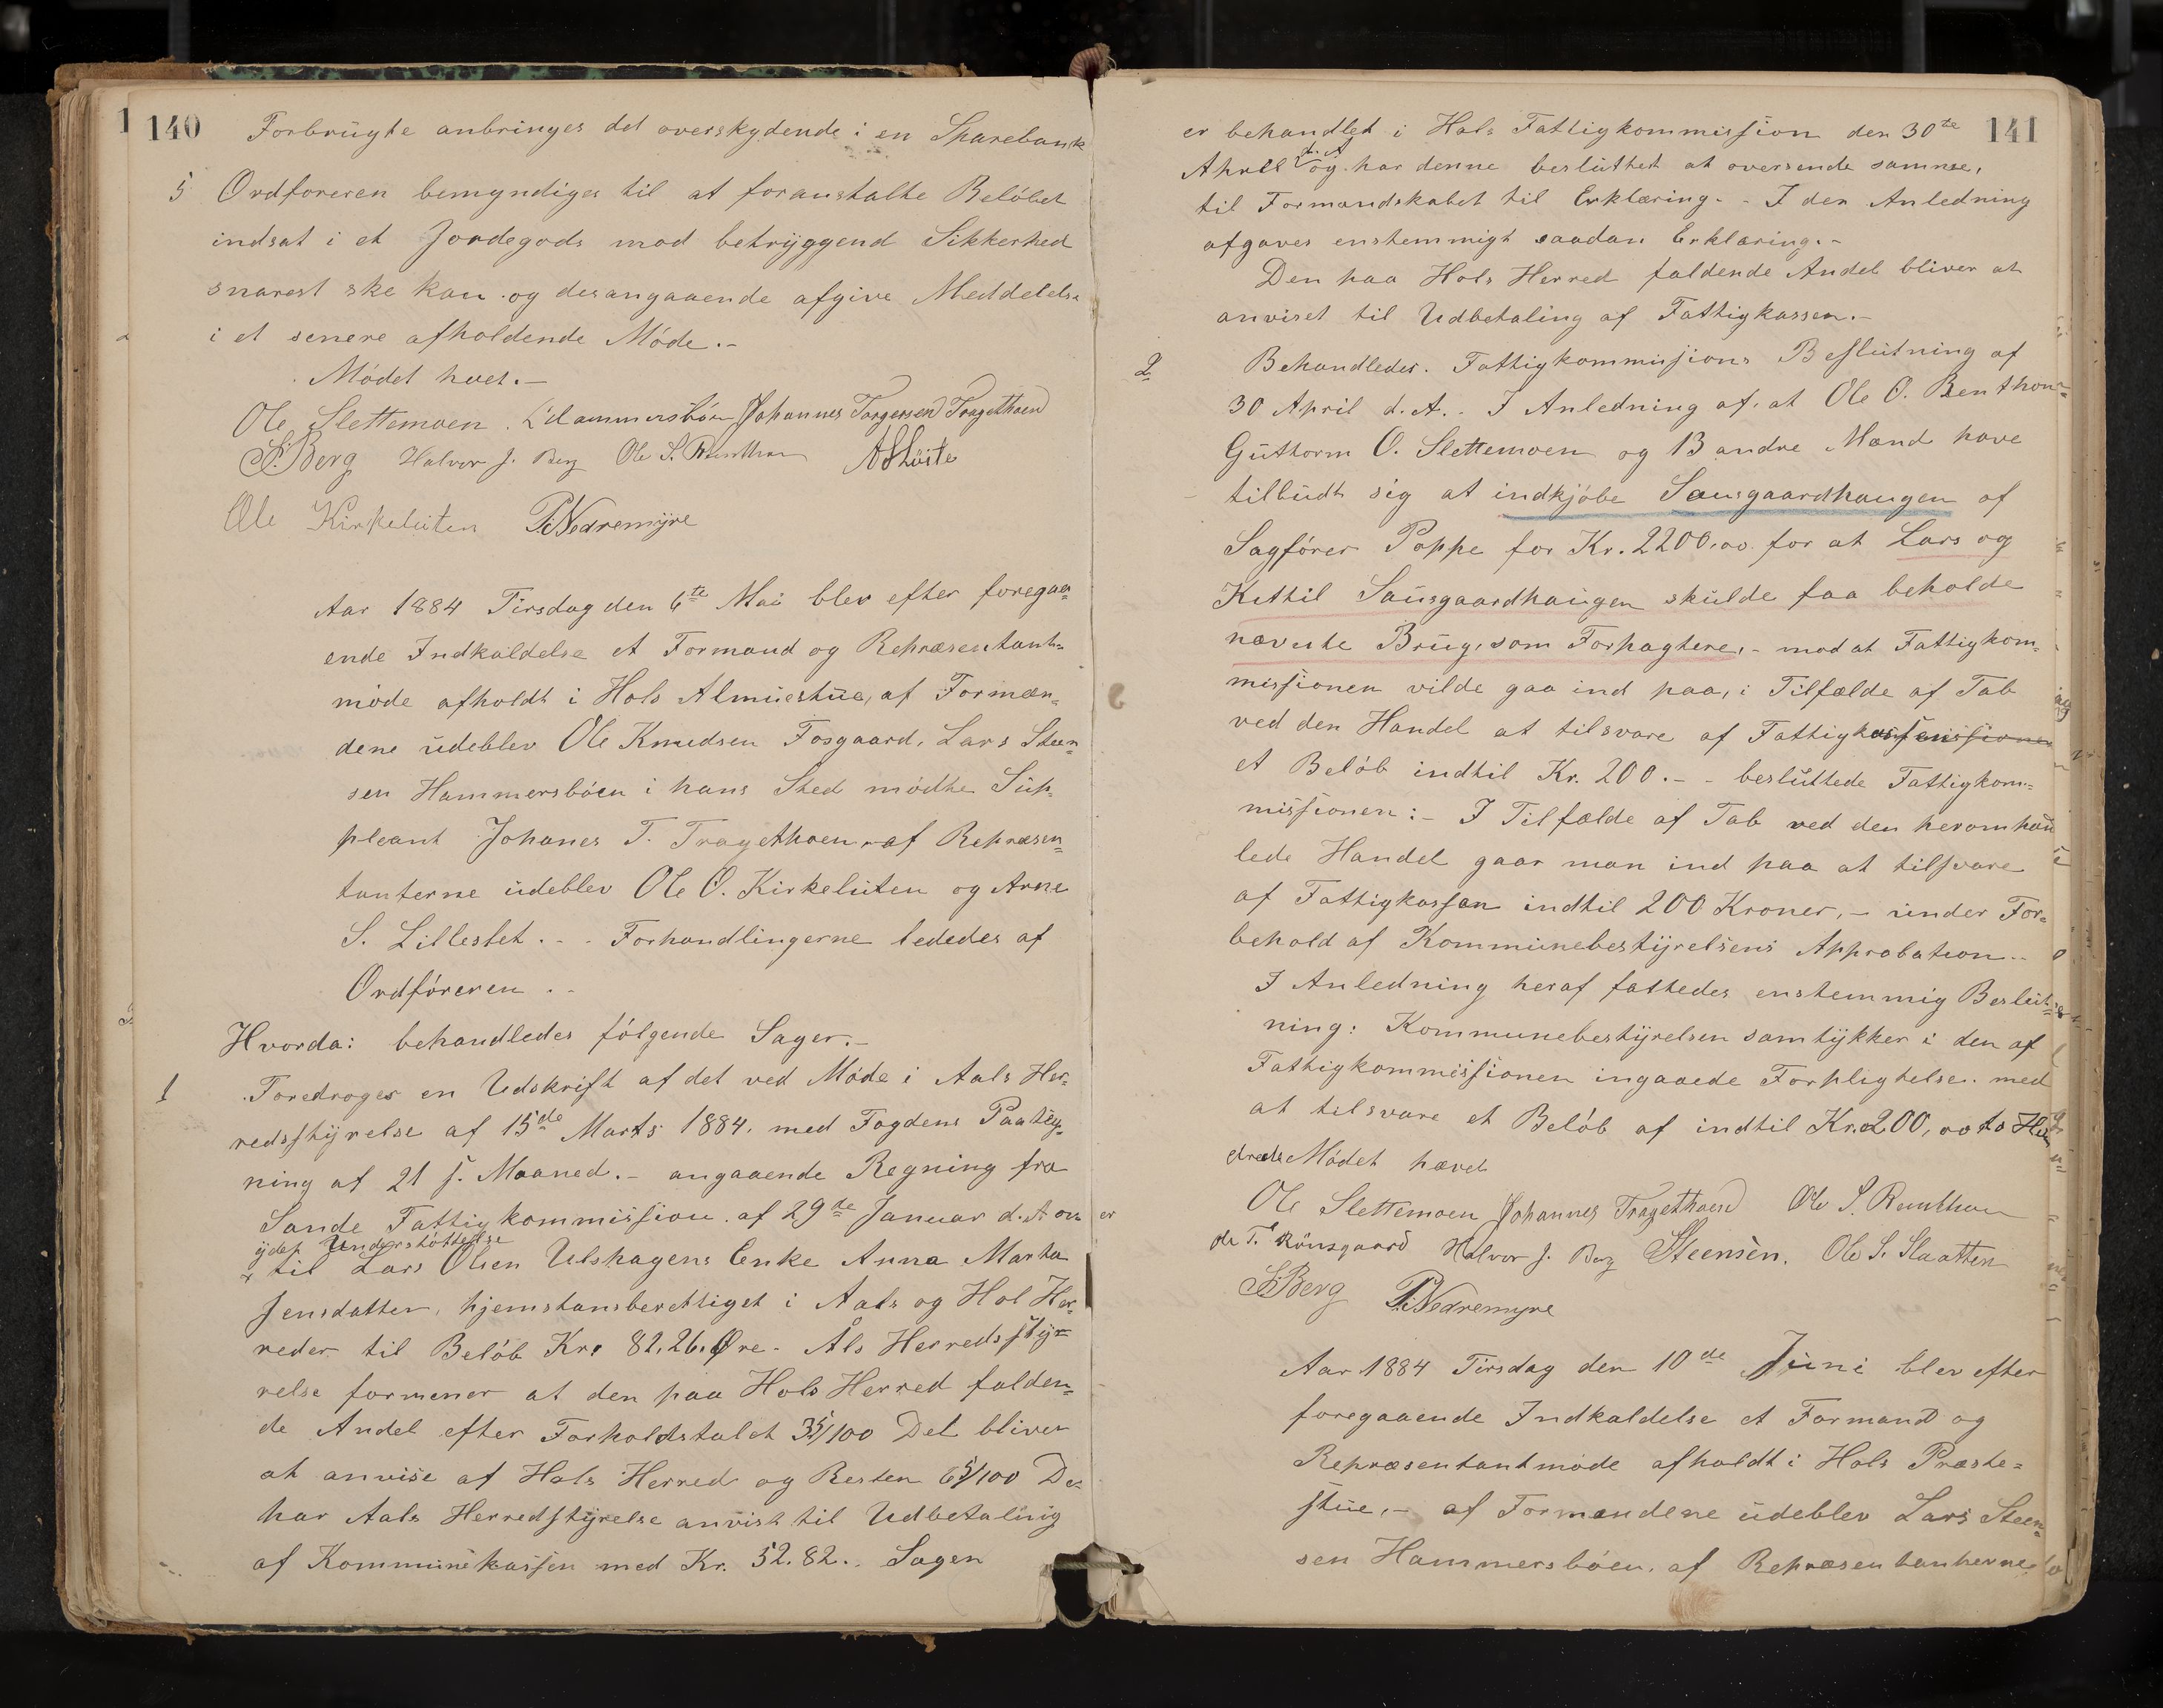 140
Forbrugte anbringes det overskydende i en Sparebank
5 Ordføreren bemyndiges til at foranstalte Beløbet
indsat i et Jordegods mod betryggend Sikkerhed
snarest ske kan og desangaaende afgive Meddelelse
i et senere afholdende Møde.-
Mødet hvet.-
Ole Slettemoen. L Hammersbøen Johannes Torgersen Tragethoen
S Berg Halvor J. Berg Ole S. Runthon
Ole Kirkeluten P Nedremyre
Aar 1884 Tirsdag den 6te Mai blev efter foregaa=
ende Indkaldelse et Formand og Repræsentant=
møde afholdt i Hols Almuestue, af Formæn=
dene udeblev Ole Knudsen Fosgaard, Lars Steen=
sen Hammersbøen i hans Sted mødte Sup=
pleant Johanes T. Tragethoen - af Repræsen=
tanterne udeblev Ole O. Kirkeluten og Arne
S. Lilleslet. - . Forhandlingerne lededes af
Ordføreren . -
Hvorda: behandledes følgende Sager.-
1 Foredroges en Udskrift af det ved Møde i Aals Her=
redsstyrelse af 15de Marts 1884, med Fogdens Paateg=
ning af 21 s. Maaned.- angaaende Regning fra
Sande Fattigkommission af 29de Januar d. A om er
ydet Understøttelse
til Lars Olsen Ulshagens Enke Anna Marta
Jensdatter, hjemstansberettiget i Aals og Hol Her=
reder til Beløb Kr. 82,26 Øre - Åls Herredssty=
relse formener at den paa Hols Herred falden=
de Andel efter Forholdstalet 35/100 Del bliver
at anvise af Hols Herred og Resten 65/100 De
har Aals Herredstyrelse anvist til Udbetaling
af Kommunekassen med Kr. 52.82.. Sagen
141
er behandlet i Hols Fattigkommission den 30te
d. A
April og har denne besluttet at oversende samme,
til Formandskabet til Erklæring. - I den Anledning
afgaves enstemmigt saadan Erklæring.-
Den paa Hols Herred faldende Andel bliver at
anviset til Udbetaling af Fattigkassen.-
2 Behandledes. Fattigkommissions Beslutning af
30 April d. A. - I Anledning af, at Ole O. Runthon=
Guttorm O. Slettemoen og 13 andre Mænd have
tilbudt sig at indkjøbe Sausgaardhaugen af
Sagfører Poppe for Kr. 2200,00 for at Lars og
Kittil Sausgaardhaugen skulde faa beholde
nævnte Brug, som Forpagtere, - mod at Fattigkom=
missionen vilde gaa ind paa, i Tilfælde af Tab
ved den Handel at tilsvare af Fattigkassen
et Beløb indtil Kr. 200.- - besluttede Fattigkom=
missionen: - I Tilfælde af Tab ved den heromhan
lede Handel gaar man ind paa at tilsvare
af Fattigkassen indtil 200 Kroner, - under For=
behold af Kommunebestyrelsens Approbation..
I Anledning heraf fattedes enstemmig Beslut=
ning: Kommunebestyrelsen samtykker i den af
Fattigkommissionen ingaaede Forpligtelse. med
at tilsvare et Beløb af indtil Kr. 200,00 to Hun
drede Mødet hævet
Ole Slettemoen Johannes Tragethoen Ole S. Runthon
Halvor J. Berg Steensen. Ole S. Slaatten
S Berg P Nedremyre
Aar 1884 Tirsdag den 10de Juni blev efter
foregaaende Indkaldelse et Formand og
Repræsentantmøde afholdt i Hols Præste=
stue, - af Formændene udeblev Lars Steen=
sen Hammersbøen, af Repræsentanterne